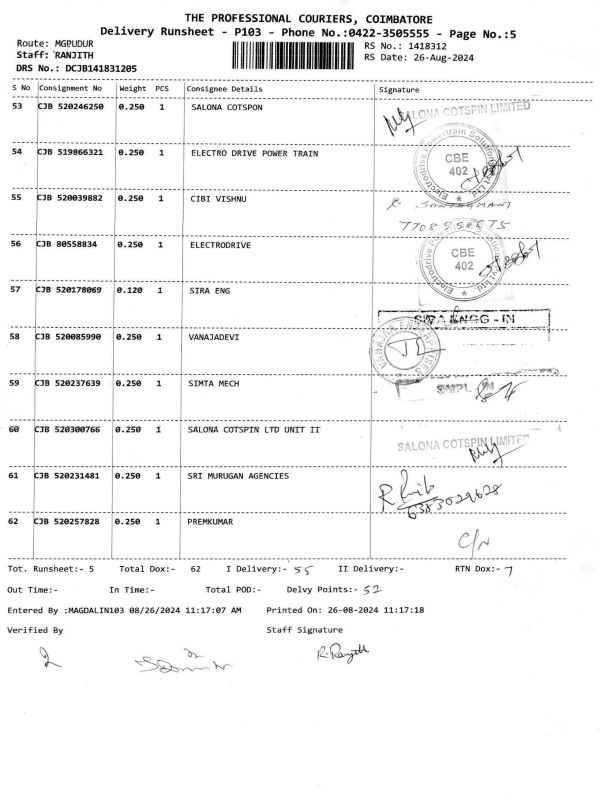 THE PROFESSIONAL COURIERS, COIMBATORE
Delivery Runsheet - P103 - Phone No.:0422-3505555 - Page No.:5
Route: MGPUDUR
RS No.: 1418312
Staff: RANJITH
RS Date: 26-Aug-2024
DRS No.: DCJB141831205
S No Consignment No Weight PCS Consignee Details Signature
53 CJB 520246250 0.250 1 SALONA COTSPON
SALONA COTSPIN LIMITED
54 CJB 519866321 0.250 1 ELECTRO DRIVE POWER TRAIN
Electrodrive Powertrain Solutions Pvt Ltd
CBE
402
55 CJB 520039882 0.250 1 CIBI VISHNU
56 CJB 80558834 0.250 1 ELECTRODRIVE
CBE
402
57 CJB 520178069 0.120 1 SIRA ENG
58 CJB 520085990 0.250 1 VANAJADEVI
59 CJB 520237639 0.250 1 SIMTA MECH
60 CJB 520300766 0.250 1 SALONA COTSPIN LTD UNIT II
SALONA COTSPIN LIMITED
61 CJB 520231481 0.250 1 SRI MURUGAN AGENCIES
6383029628
62 CJB 520257828 0.250 1 PREMKUMAR
C/N
Tot. Runsheet:- 5 Total Dox:- 62 I Delivery:- 55 II Delivery:- RTN Dox:- 7
Out Time:- In Time:- Total POD:- Delvy Points:- 52
Entered By :MAGDALIN103 08/26/2024 11:17:07 AM Printed On: 26-08-2024 11:17:18
Verified By Staff Signature